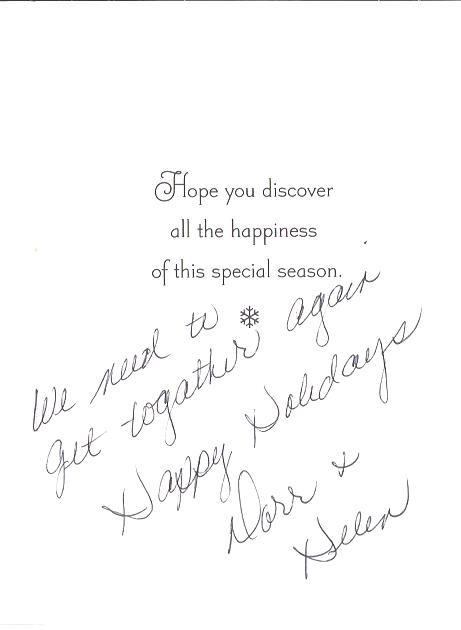 Hope you discover
all the happiness
of this special season.
We need to
get together again
Happy Holidays
Dorr &
Helen